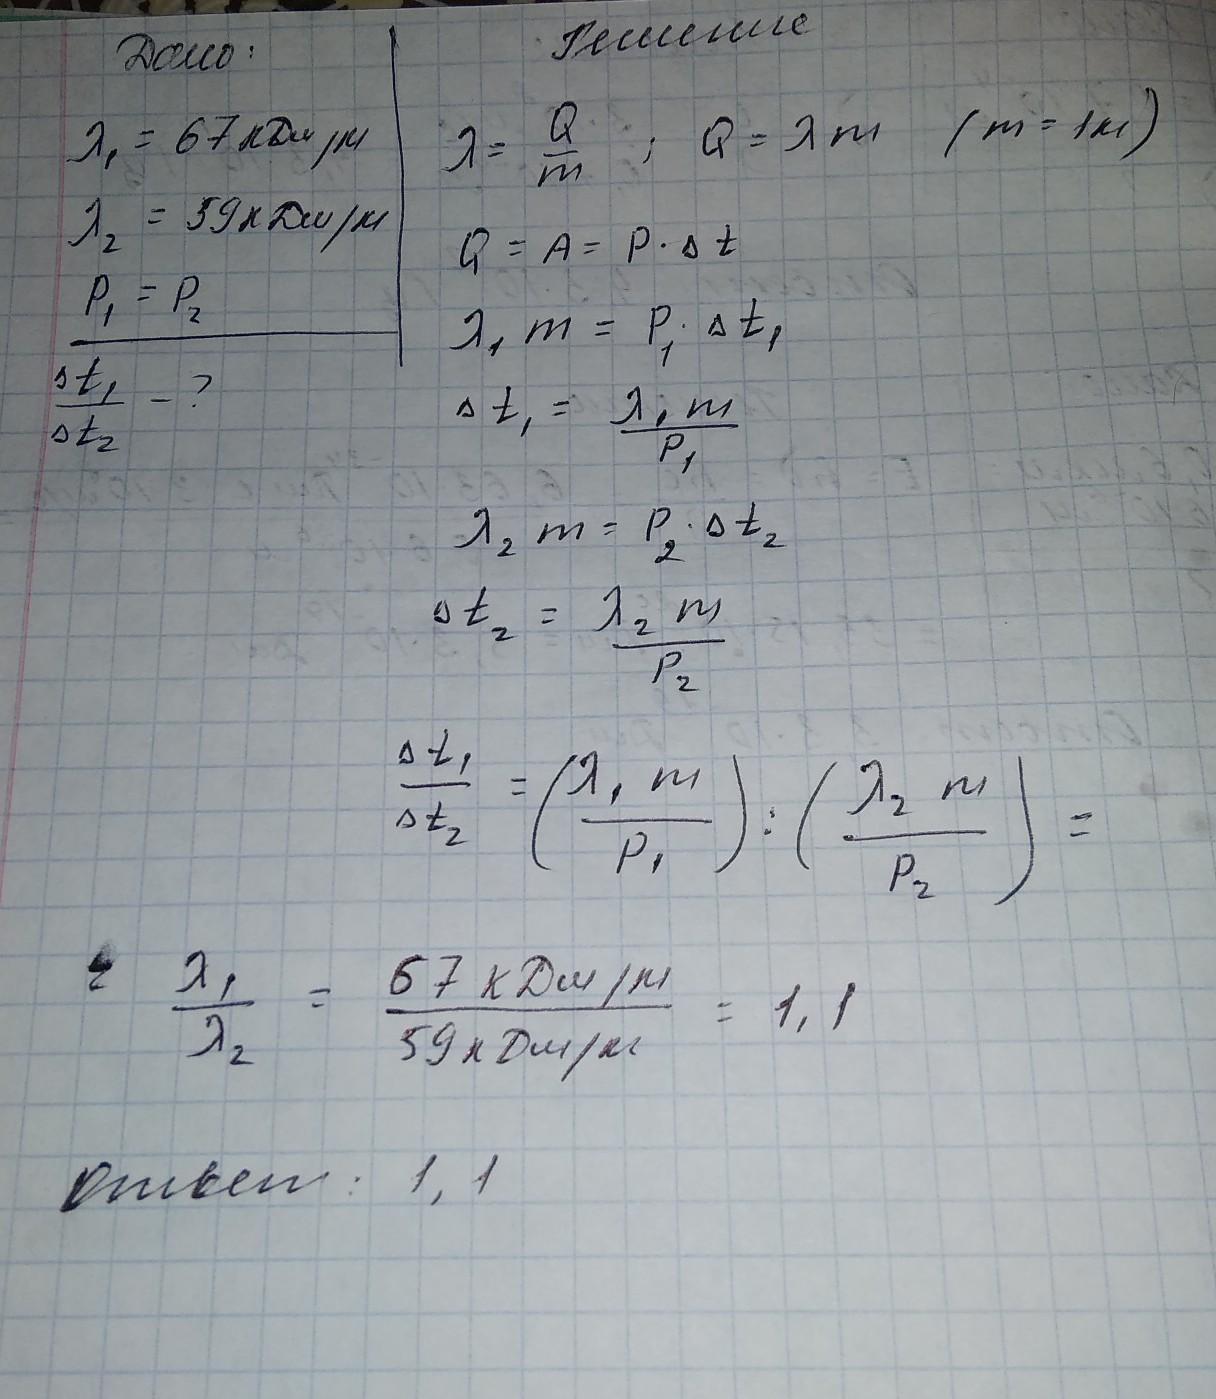 Дано:
λ₁ = 67 кДж/кг
λ₂ = 59 кДж/кг
P₁ = P₂
Δt₁/Δt₂ - ?
Решение
λ = Q/m ; Q = λm (m = 1кг)
Q = A = P · Δt
λ₁ m = P₁ · Δt₁
Δt₁ = λ₁ m/P₁
λ₂ m = P₂ · Δt₂
Δt₂ = λ₂ m/P₂
Δt₁/Δt₂ = (λ₁ m/P₁) : (λ₂ m/P₂) =
λ₁/λ₂ = 67 кДж/кг / 59 кДж/кг = 1,1
Ответ: 1,1